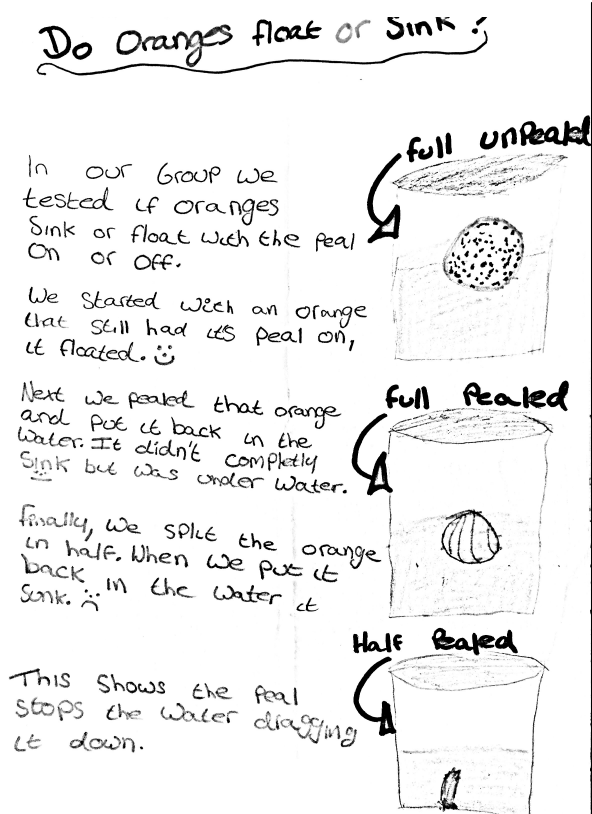 Do Oranges float or Sink?
full unPealed
In our Group we
tested if oranges
Sink or float with the peal
On or Off.
We Started with an orange
that still had its peal on,
it floated.
full Pealed
Next we pealed that orange
and put it back in the
water. It didn't completly
Sink but was under water.
Finally, we split the orange
in half. When we put it
back in the water it
Sunk.
Half Pealed
This Shows the Peal
stops the water dragging
it down.